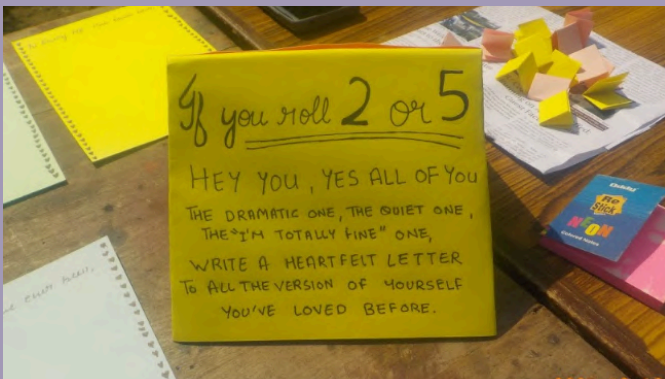 If you roll 2 or 5
HEY YOU, YES ALL OF YOU
THE DRAMATIC ONE, THE QUIET ONE,
THE "I'M TOTALLY FINE" ONE,
WRITE A HEARTFELT LETTER
TO ALL THE VERSION OF YOURSELF
YOU'VE LOVED BEFORE.
Re
Stick
NEON
Colored Notes